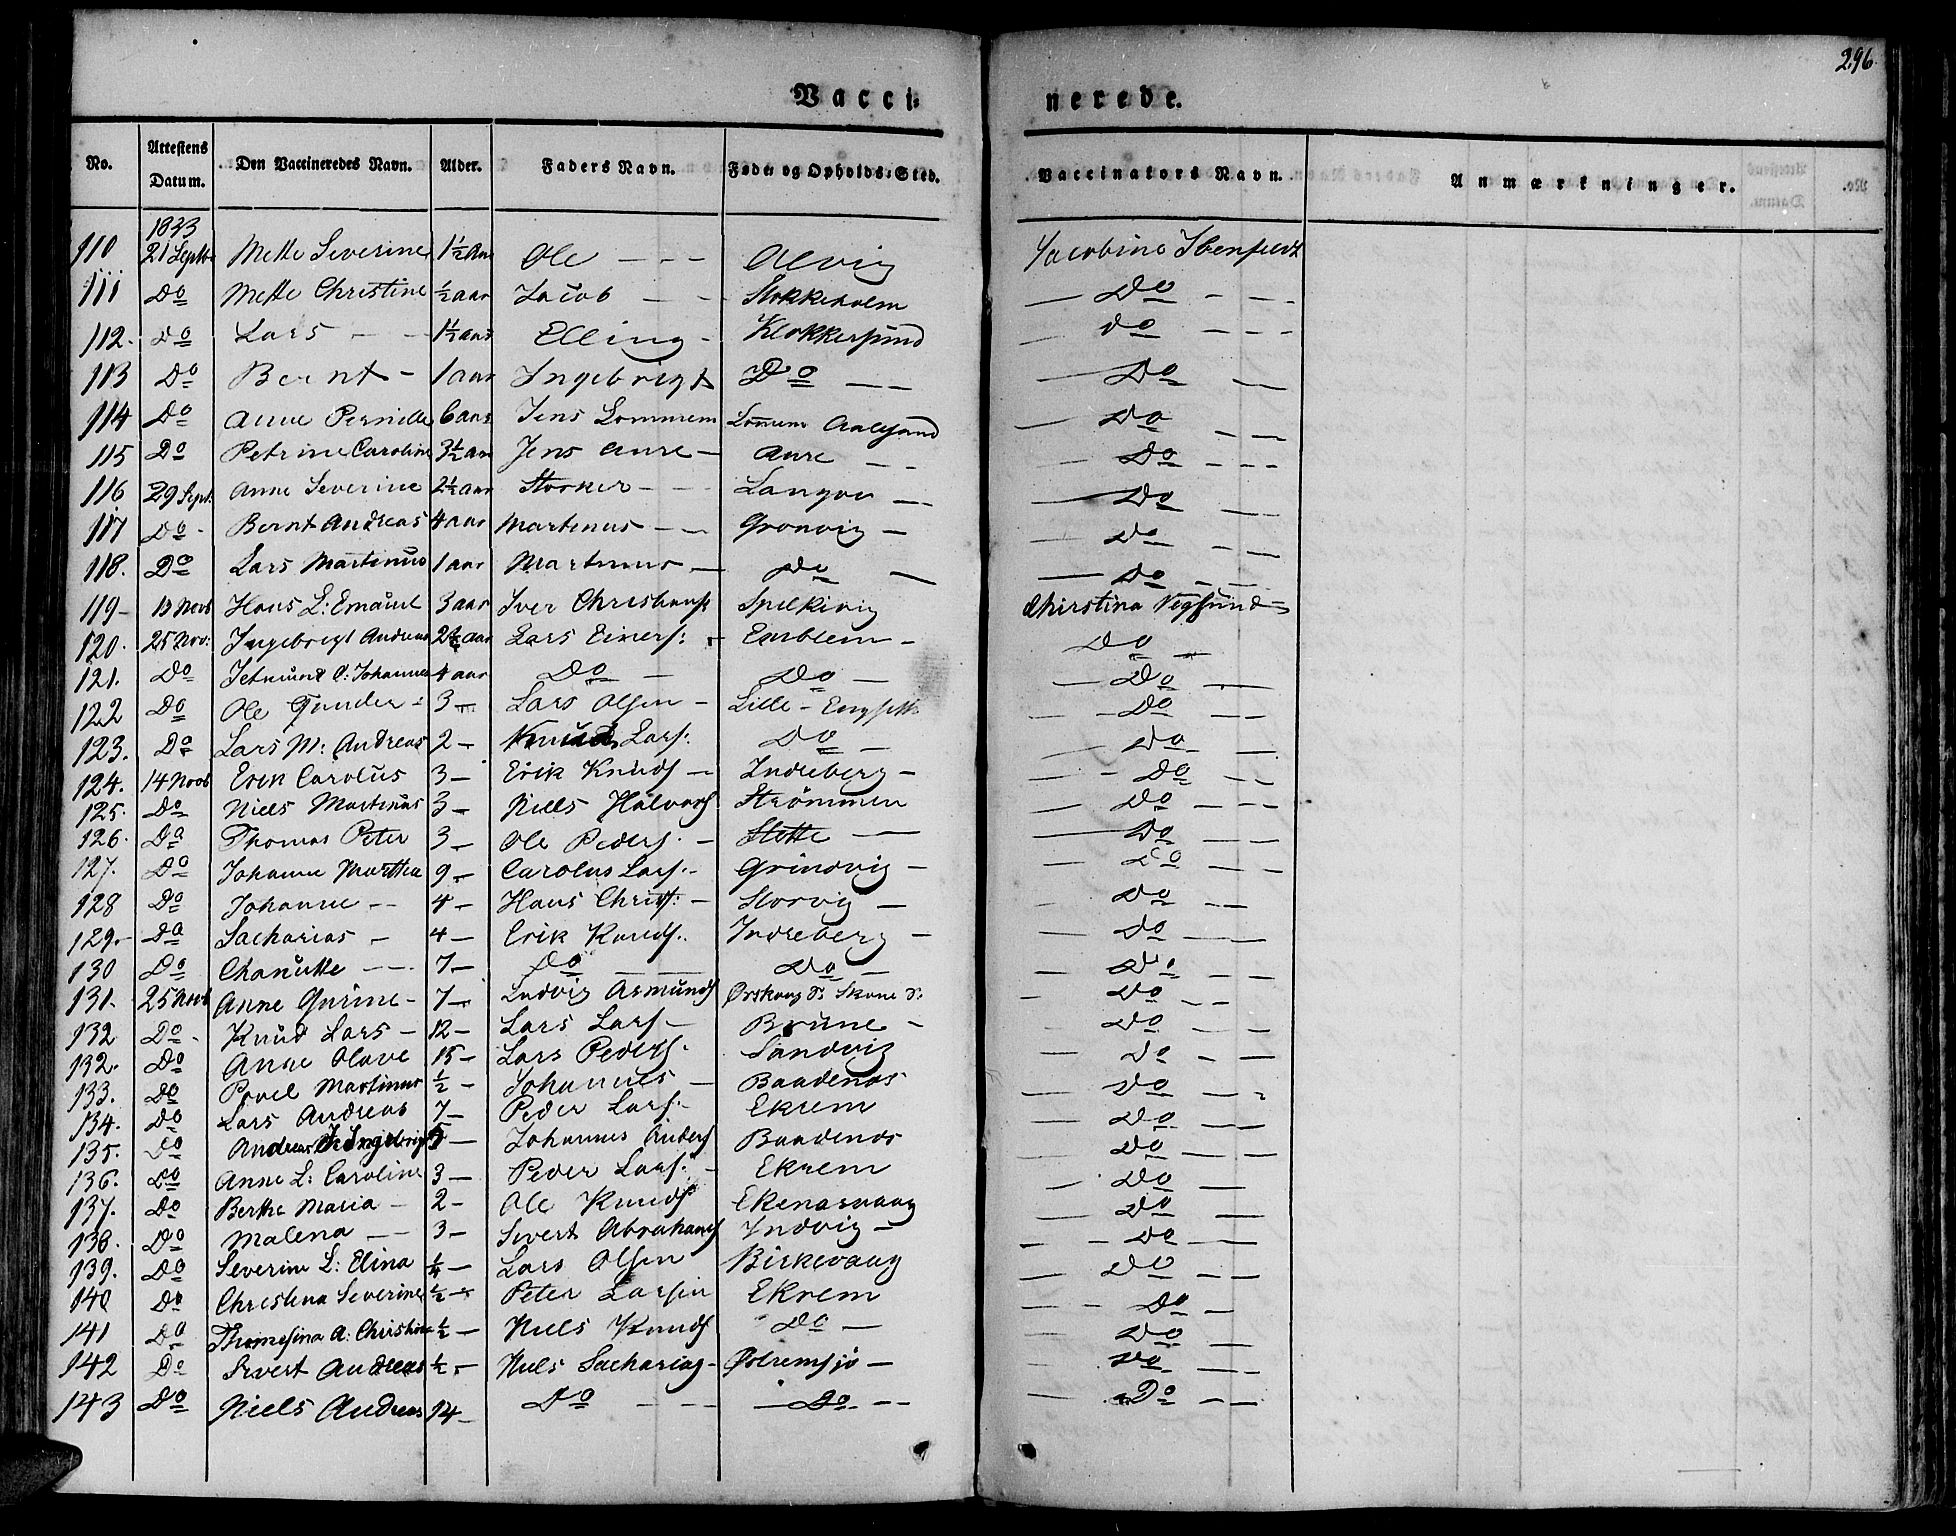 296
Vacci- nerede.
No. Attestens Datum. Den Vaccineredes Navn. Alder. Faders Navn. Føde- og Opholds-Sted. Vaccinators Navn. Anmærkninger.
1833
110 21 Septbr Mette Severine 1½ Aar Ole - - - Alvig Jacobine Ibenfeldt
111 Do Mette Christine ½ aar Jacob - - Stokkeholm - Do - - -
112. Do Lars - - 1½ aar Elling - Klokkersund - do - - -
113 Do Bernt - 1 aar Ingebrigt Do - - - Do - -
114 Do Anne Pernille 6 aar Jens Lommem Aalesund - Do - -
115 Do Petrine Caroline 3½ aar Jens Aure - Aure - - - Do - - -
116 29 Sept. Anne Severine 2½ aar Storker - - Langva - - Do - -
117 Do - Bernt Andreas 4 aar Martinus - - Gronvig - - Do - -
118. Do Lars Martinus 1 aar Martinus - Do - - Do - -
119 - 13 Novb Hans L: Emanuel 3 aar Iver Spelkivig Christina Vegsund
120. 25 Nov: Ingebrigt Andreas 2½ aar Lars Einers: - Emblem - Do -
121. Do C: Johannes 4 aar Do - Do - - Do -
122 Do Ole Gunder - 3 - Lars Olsen - Lille - - - Do - -
123. Do Lars M: Andreas 2 - Knud Lars: Do - - Do - -
124. 14 Novb Erik Carolus 3 - Erik Knuds - Indreberg - - - Do - -
125. Do Niels Martinus 3 - Niels Halvors Strømmen - Do - - -
126. Do Thomas Peter 3 - Ole Peders. - Stette - - Do - -
127. Do Johanne Marthea 9 - Carolus Lars. - Grindvig - - Do - -
128 Do Johanne - - 4 - Hans Christ: - Storvig - - Do - -
129. - Do Sacharias - 4 - Erik Knuds. Indreberg - - do - -
130 Do Chanutte - - 7 - Do - - Do - - Do - -
131. 25 Novb Anne Gurine - 7 - Ludvig Asmunds Ørskoug - Do - -
132 Do - Knud Lars - 12 - Lars Lars - Brune - - Do - -
132. Do Anne Olave 15 - Lars Peders - Sandvig - Do - -
133. Do Povel Martinus ½ - Johannes - Baadenæs - Do - -
134. Do Lars Andreas 7 - Peder Lars - Ekrem - Do - -
135. Do Andreas Ingebrigt - Johannes Anders Baadenæs - Do - -
136. Do Anne L: Caroline 3 - Peder Lars: - Ekrem - Do - -
137. Do Berthe Maria - 2 - Ole Knuds Ekenæsvaag - Do - -
138. Do Malena - - 3 - Sivert Abrahams Indvig - - - Do - -
139. Do Severine L: Elina ¼ - Lars Olsen Birkevaag - Do - -
140 Do Christina Severine ½ - Peter Larsen Ekrem - - Do -
141 Do Thomesina A: Christine ½ - Niels Knuds Do - - Do - -
142 Do Sivert Andreas ½ - Niels Sacharias - Østremsjo - - Do - -
143 Do Niels Andreas 14 - Do - - - - Do - - - Do - -